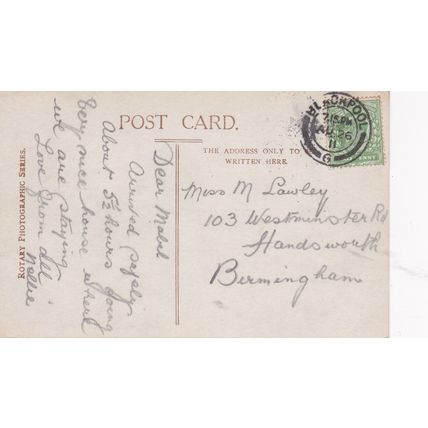 POST CARD.
THE ADDRESS ONLY TO BE
WRITTEN HERE.
ROTARY PHOTOGRAPHIC SERIES.
BLACKPOOL
7.15 PM
26
11
G
Dear Mabel
Arrived safely
About 5½ hours going
Very nice house where
we are staying
Love from all
Nellie
Miss M Lawley
103 Westminster Rd
Handsworth
Birmingham